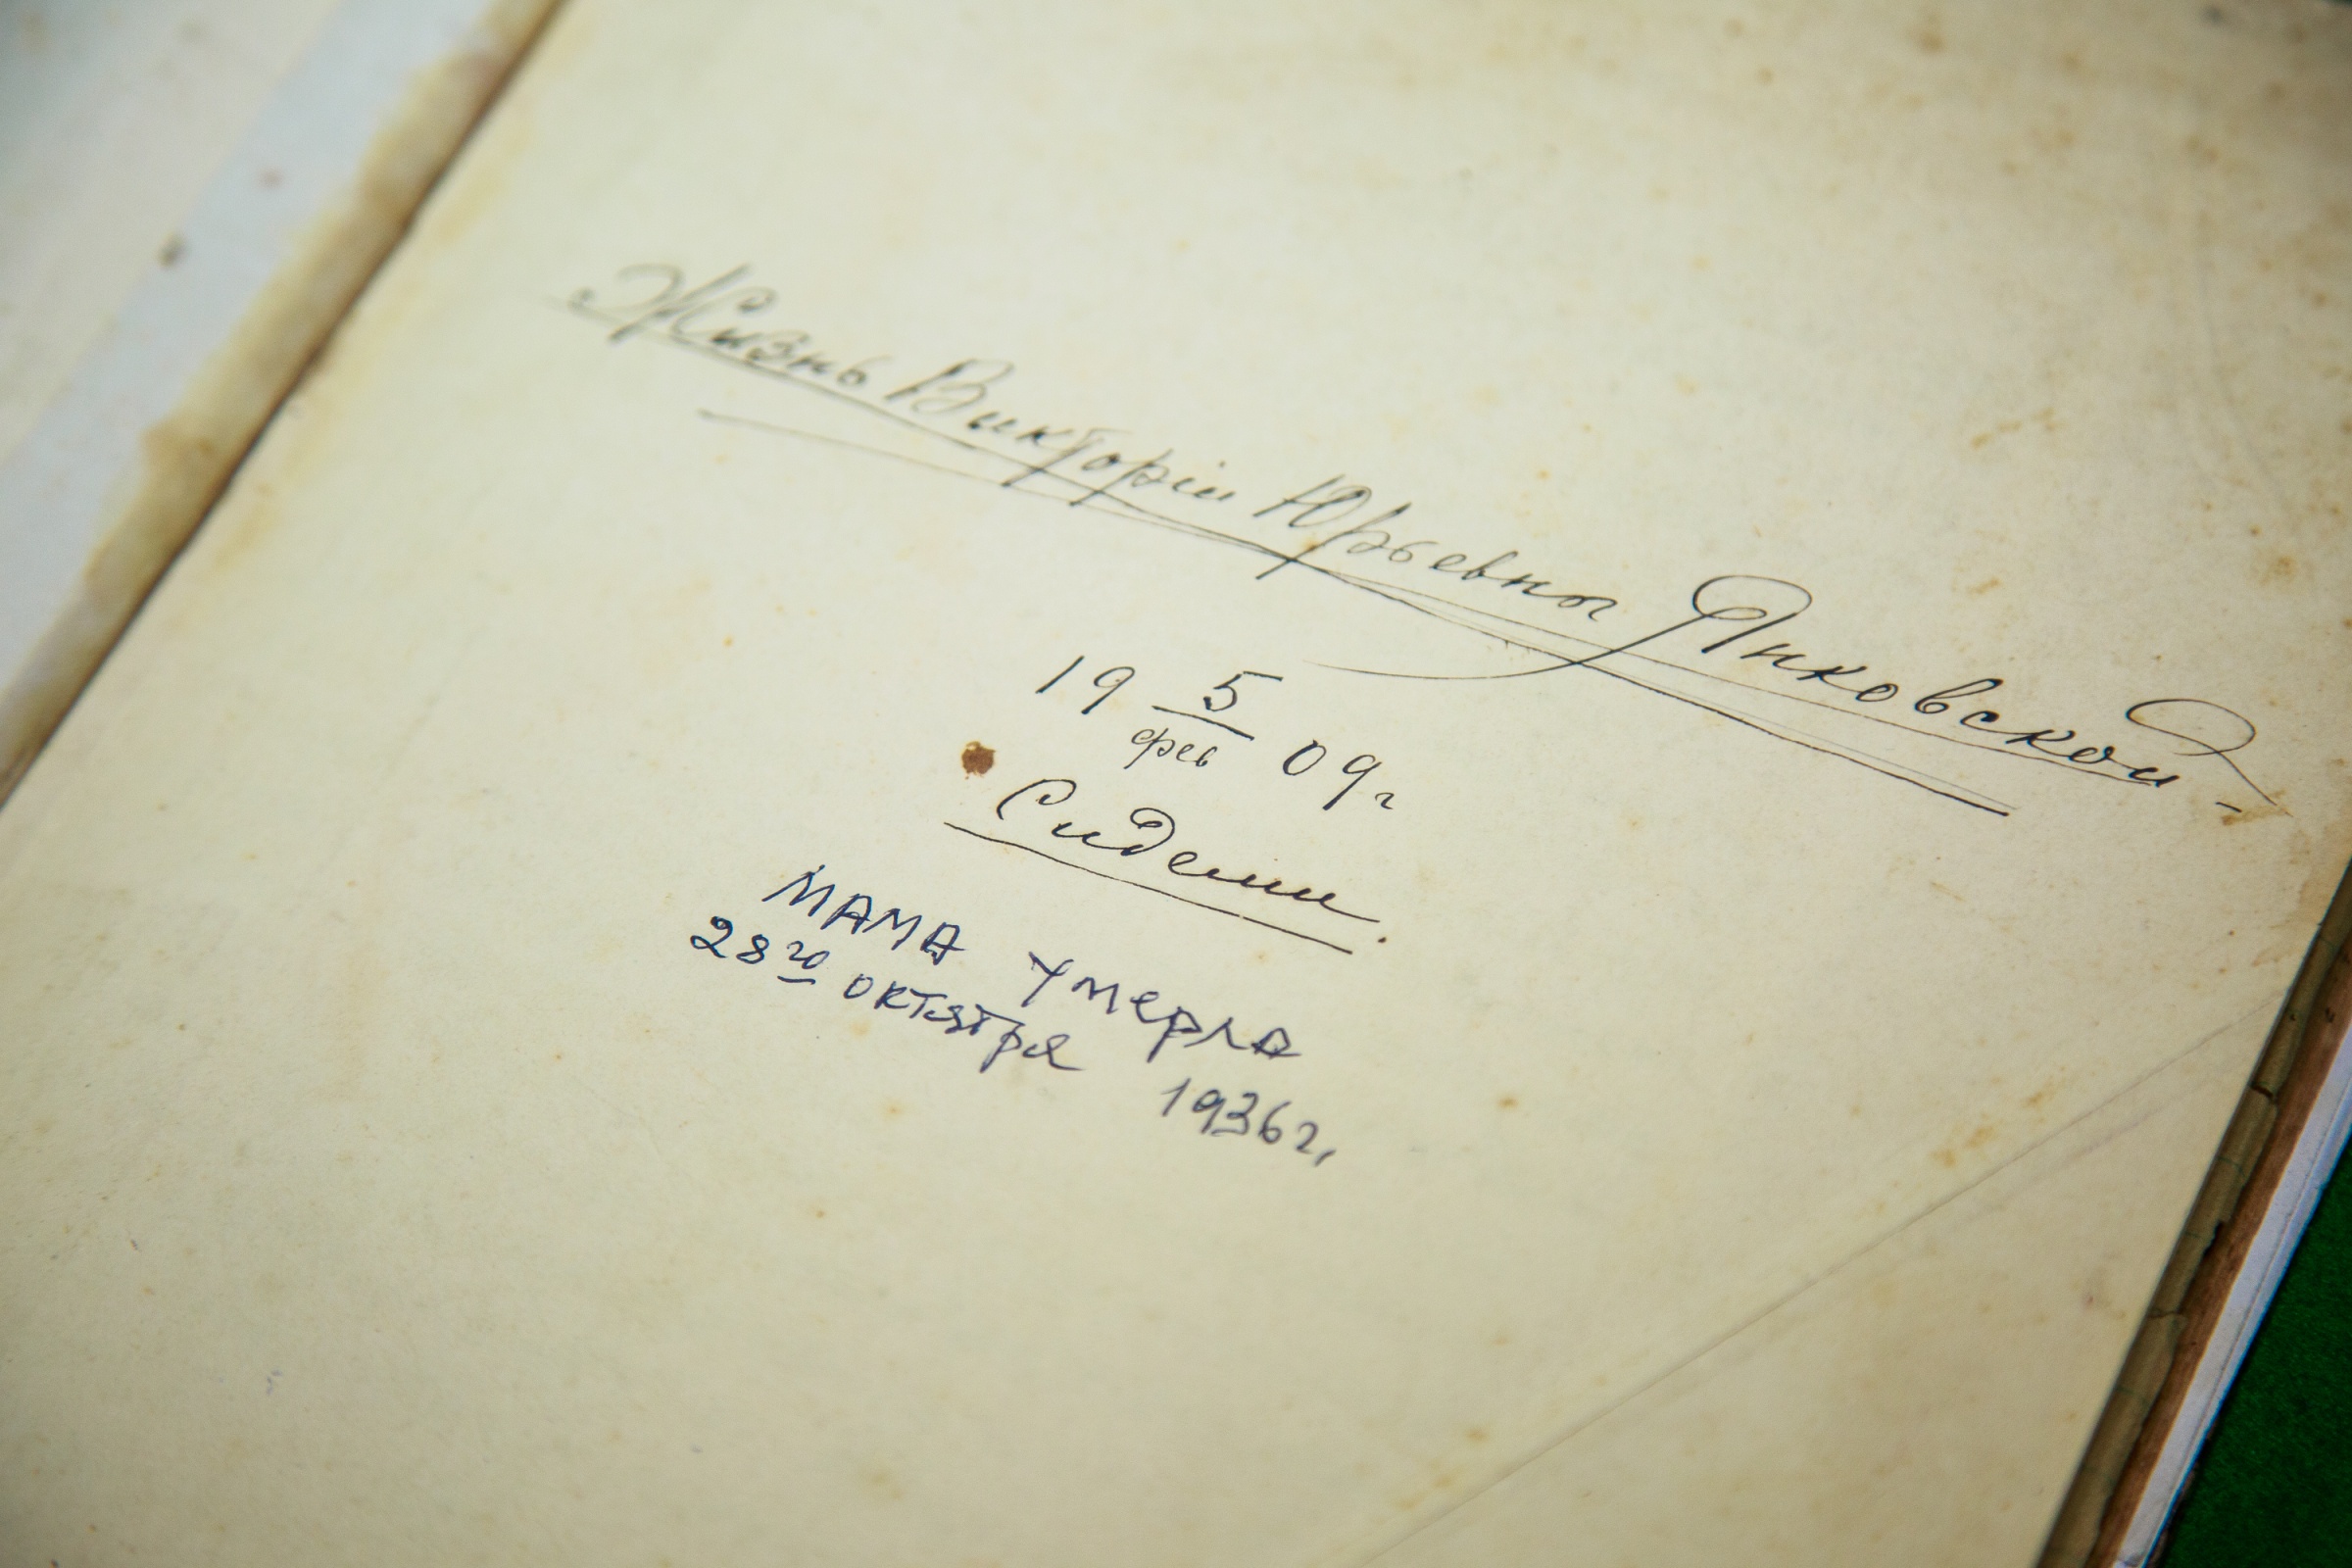 Жизнь Викторіи Юрьевны Янковской-
19 5/фев 09г
Сидеми.
МАМА УМЕРЛА
28го ОКТЯБРЯ 1936г.